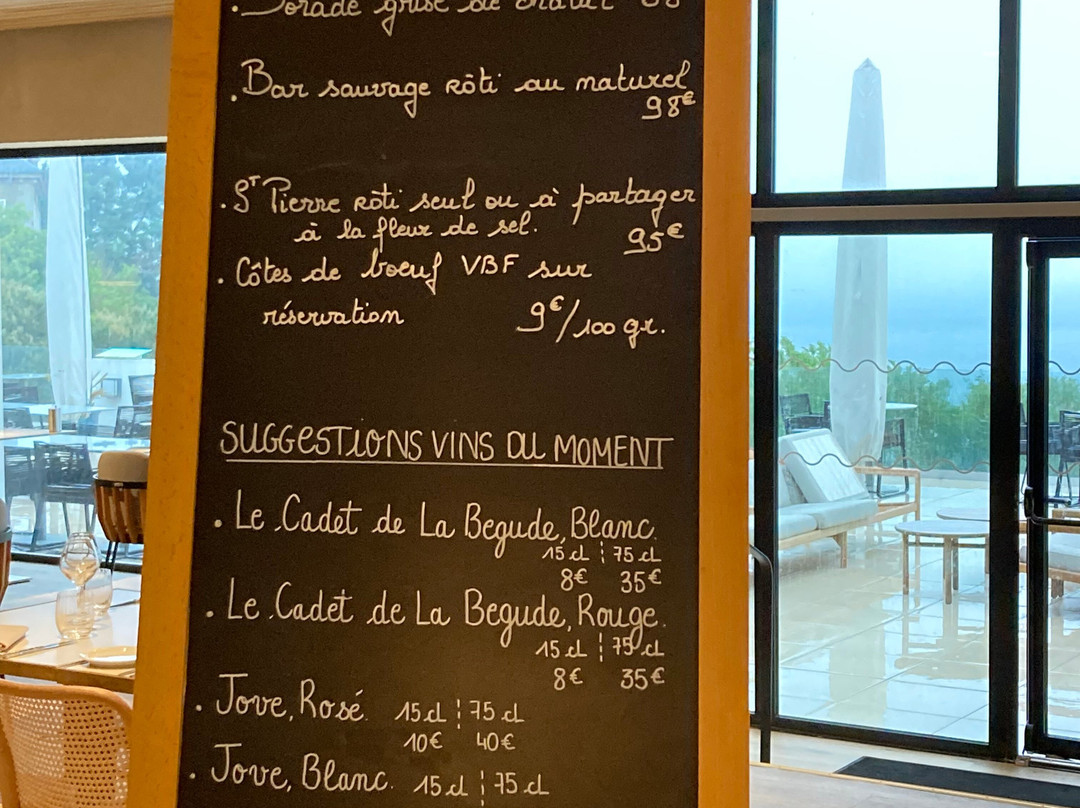 . Dorade grise de chalut
. Bar sauvage rôti au naturel
98€
. Sᵀ Pierre rôti seul ou à partager
à la fleur de sel.
95€
. Côtes de boeuf VBF sur
réservation 9€/100 gr.
SUGGESTIONS VINS DU MOMENT
. Le Cadet de La Begude, Blanc.
15 cl ¦ 75 cl
8€ 35€
. Le Cadet de La Begude, Rouge.
15 cl ¦ 75 cl
8€ 35€
. Jove, Rosé. 15 cl ¦ 75 cl
10€ 40€
. Jove, Blanc. 15 cl ¦ 75 cl